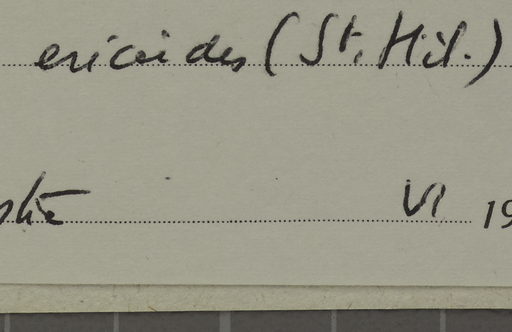 ericoides (St. Hil.)
VI 19